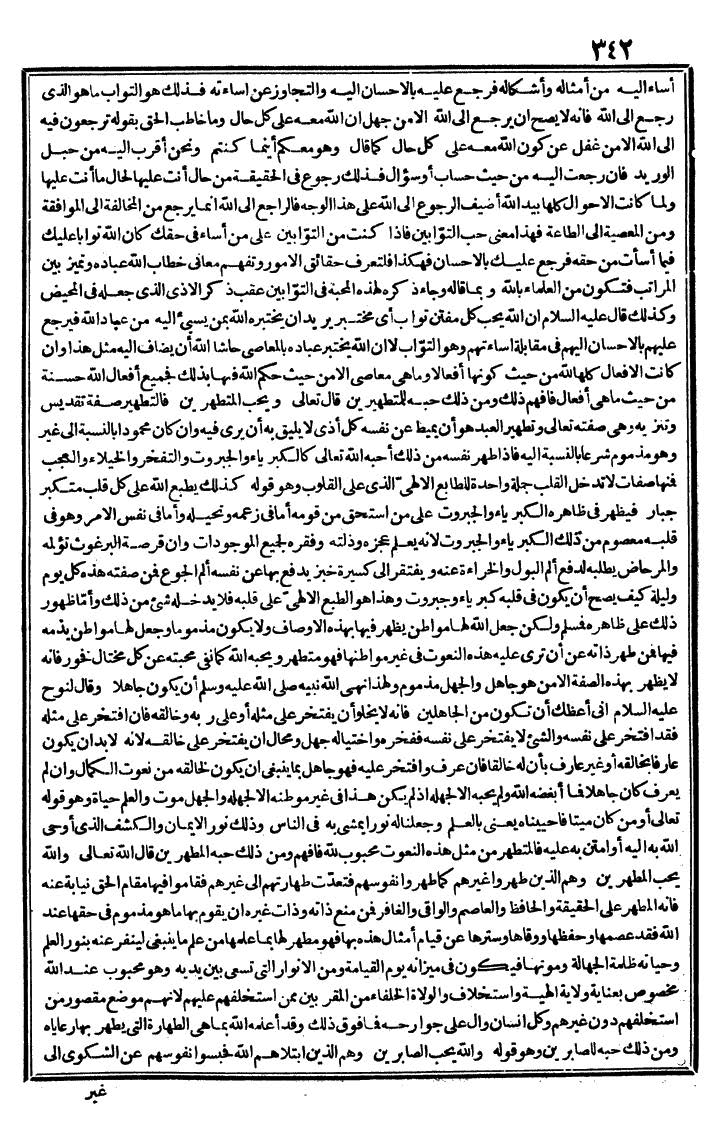 ٣٤٢
أساء اليه من أمثاله وأشكاله فرجع عليه بالاحسان اليه والتجاوز عن اساءته فذلك هو التواب ما هو الذى
رجع الى الله فانه لا يصح ان يرجع الى الله الا من جهل ان الله معه على كل حال وما خاطب الحق بقوله ترجعون فيه
الى الله الا من غفل عن كون الله معه على كل حال كما قال وهو معكم أينما كنتم ونحن أقرب اليه من حبل
الوريد فان رجعت اليه من حيث حساب أو سؤال فذلك رجوع فى الحقيقة من حال أنت عليها لحال ما أنت عليها
ولما كانت الاحوال كلها بيد الله أضيف الرجوع الى الله على هذا الوجه فالراجع الى الله انما يرجع من المخالفة الى الموافقة
ومن المعصية الى الطاعة فهذا معنى حب التوابين فاذا كنت من التوابين على من أساء فى حقك كان الله توابا عليك
فيما أسأت من حقه فرجع عليك بالاحسان فهكذا فلتعرف حقائق الامور وتفهم معانى خطاب الله عباده وتميز بين
المراتب فتكون من العلماء بالله وبما قاله وجاء ذكره لهذه المحبة فى التوّابين عقب ذكر الاذى الذى جعله فى المحيض
وكذلك قال عليه السلام ان الله يحب كل مفتن تواب أى مختبر يريد ان يختبره الله بمن يسىء اليه من عباد الله فيرجع
عليهم بالاحسان اليهم فى مقابلة اساءتهم وهو التوّاب لا ان الله يختبر عباده بالمعاصى حاشا الله أن يضاف اليه مثل هذا وان
كانت الافعال كلها لله من حيث كونها أفعالا وما هى معاصى الا من حيث حكم الله فيها بذلك فجميع أفعال الله حسنة
من حيث ما هى أفعال فافهم ذلك ومن ذلك حبه للمتطهرين قال تعالى ويحب المتطهرين فالتطهير صفة تقديس
وتنزيه وهى صفته تعالى وتطهير العبد هو أن يميط عن نفسه كل أذى لا يليق به أن يرى فيه وان كان محمودا بالنسبة الى غيره
وهو مذموم شرعا بالنسبة اليه فاذا طهر نفسه من ذلك أحبه الله تعالى كالكبرياء والجبروت والتفخر والخيلاء والعجب
فنها صفات لا تدخل القلب جملة واحدة للطابع الالهىّ الذى على القلوب وهو قوله كذلك يطبع الله على كل قلب متكبر
جبار فيظهر فى ظاهره الكبرياء والجبروت على من استحق من قومه أما فى زعمه وتخيله وأما فى نفس الامر وهو فى
قلبه معصوم من ذلك الكبرياء والجبروت لانه يعلم عجزه وذلته وفقره لجميع الموجودات وان قرصة البرغوث تؤلمه
والمرحاض يطلبه لدفع ألم البول والخراءة عنه ويفتقر الى كسيرة خبز يدفع بها عن نفسه ألم الجوع فمن صفته هذه كل يوم
وليلة كيف يصح أن يكون فى قلبه كبرياء وجبروت وهذا هو الطبع الالهىّ على قلبه فلا يدخله شئ من ذلك وأمّا ظهور
ذلك على ظاهره فسلم ولكن جعل الله لها مواطن يظهر فيها بهذه الاوصاف ولا يكون مذموما وجعل لها مواطن يذمه
فيها فمن طهر ذاته عن أن ترى عليه هذه النعوت فى غير مواطنها فهو متطهر ويحبه الله كما نفى محبته عن كل مختال فخور فانه
لا يظهر بهذه الصفة الا من هو جاهل والجهل مذموم ولهذا نهى الله نبيه صلى الله عليه وسلم أن يكون جاهلا وقال لنوح
عليه السلام انى أعظك أن تكون من الجاهلين فانه لا يخلو أن يفتخر على مثله أو على ربه وخالقه فان افتخر على مثله
فقد افتخر على نفسه والشئ لا يفتخر على نفسه ففخره واختياله جهل ومحال ان يفتخر على خالقه لانه لابد ان يكون
عارفا بخالقه أو غير عارف بأن له خالقا فان عرف وافتخر عليه فهو جاهل بما ينبغى ان يكون لخالقه من نعوت الكمال وان لم
يعرف كان جاهلا فما أبغضه الله ولم يحبه الا لجهله اذ لم يكن هذا فى غير موطنه الا لجهله والجهل موت والعلم حياة وهو قوله
تعالى أو من كان ميتا فأحييناه يعنى بالعلم وجعلنا له نورا يمشى به فى الناس وذلك نور الايمان والكشف الذى أوحى
الله به اليه أو امتن به عليه فالمتطهر من مثل هذه النعوت محبوب لله فافهم ومن ذلك حبه المطهرين قال الله تعالى والله
يحب المطهرين وهم الذين طهروا غيرهم كما طهروا نفوسهم فتعدّت طهارتهم الى غيرهم فقاموا فيها مقام الحق نيابة عنه
فانه المطهر على الحقيقة والحافظ والعاصم والواقى والغافر فمن منع ذاته وذات غيره ان يقوم بها ما هو مذموم فى حقها عند
الله فقد عصمها وحفظها ووقاها وسترها عن قيام أمثال هذه بها فهو مطهر لها بما علمها من علم ما ينبغى لينفر عنه بنور العلم
وحياته ظلمة الجهالة وموتها فيكون فى ميزانه يوم القيامة ومن الانوار التى تسعى بين يديه وهو محبوب عند الله
مخصوص بعناية ولاية الهية واستخلاف والولاة الخلفاء من المقربين بمن استخلفهم عليهم لانهم موضع مقصور من
استخلفهم دون غيرهم وكل انسان وال على جوارحه فما فوق ذلك وقد أعلمه الله بما هى الطهارة التى يطهر بها رعاياه
ومن ذلك حبه للصابرين وهو قوله والله يحب الصابرين وهم الذين ابتلاهم الله فحبسوا نفوسهم عن الشكوى الى
غير